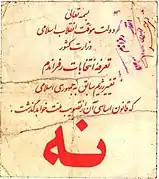 بسمه تعالی
دولت موقت انقلاب اسلامی
وزارت کشور
تعرفه انتخابات رفراندم
تغییر رژیم سابق به جمهوری اسلامی
که قانون اساسی آن از تصویب ملت خواهد گذشت
نه